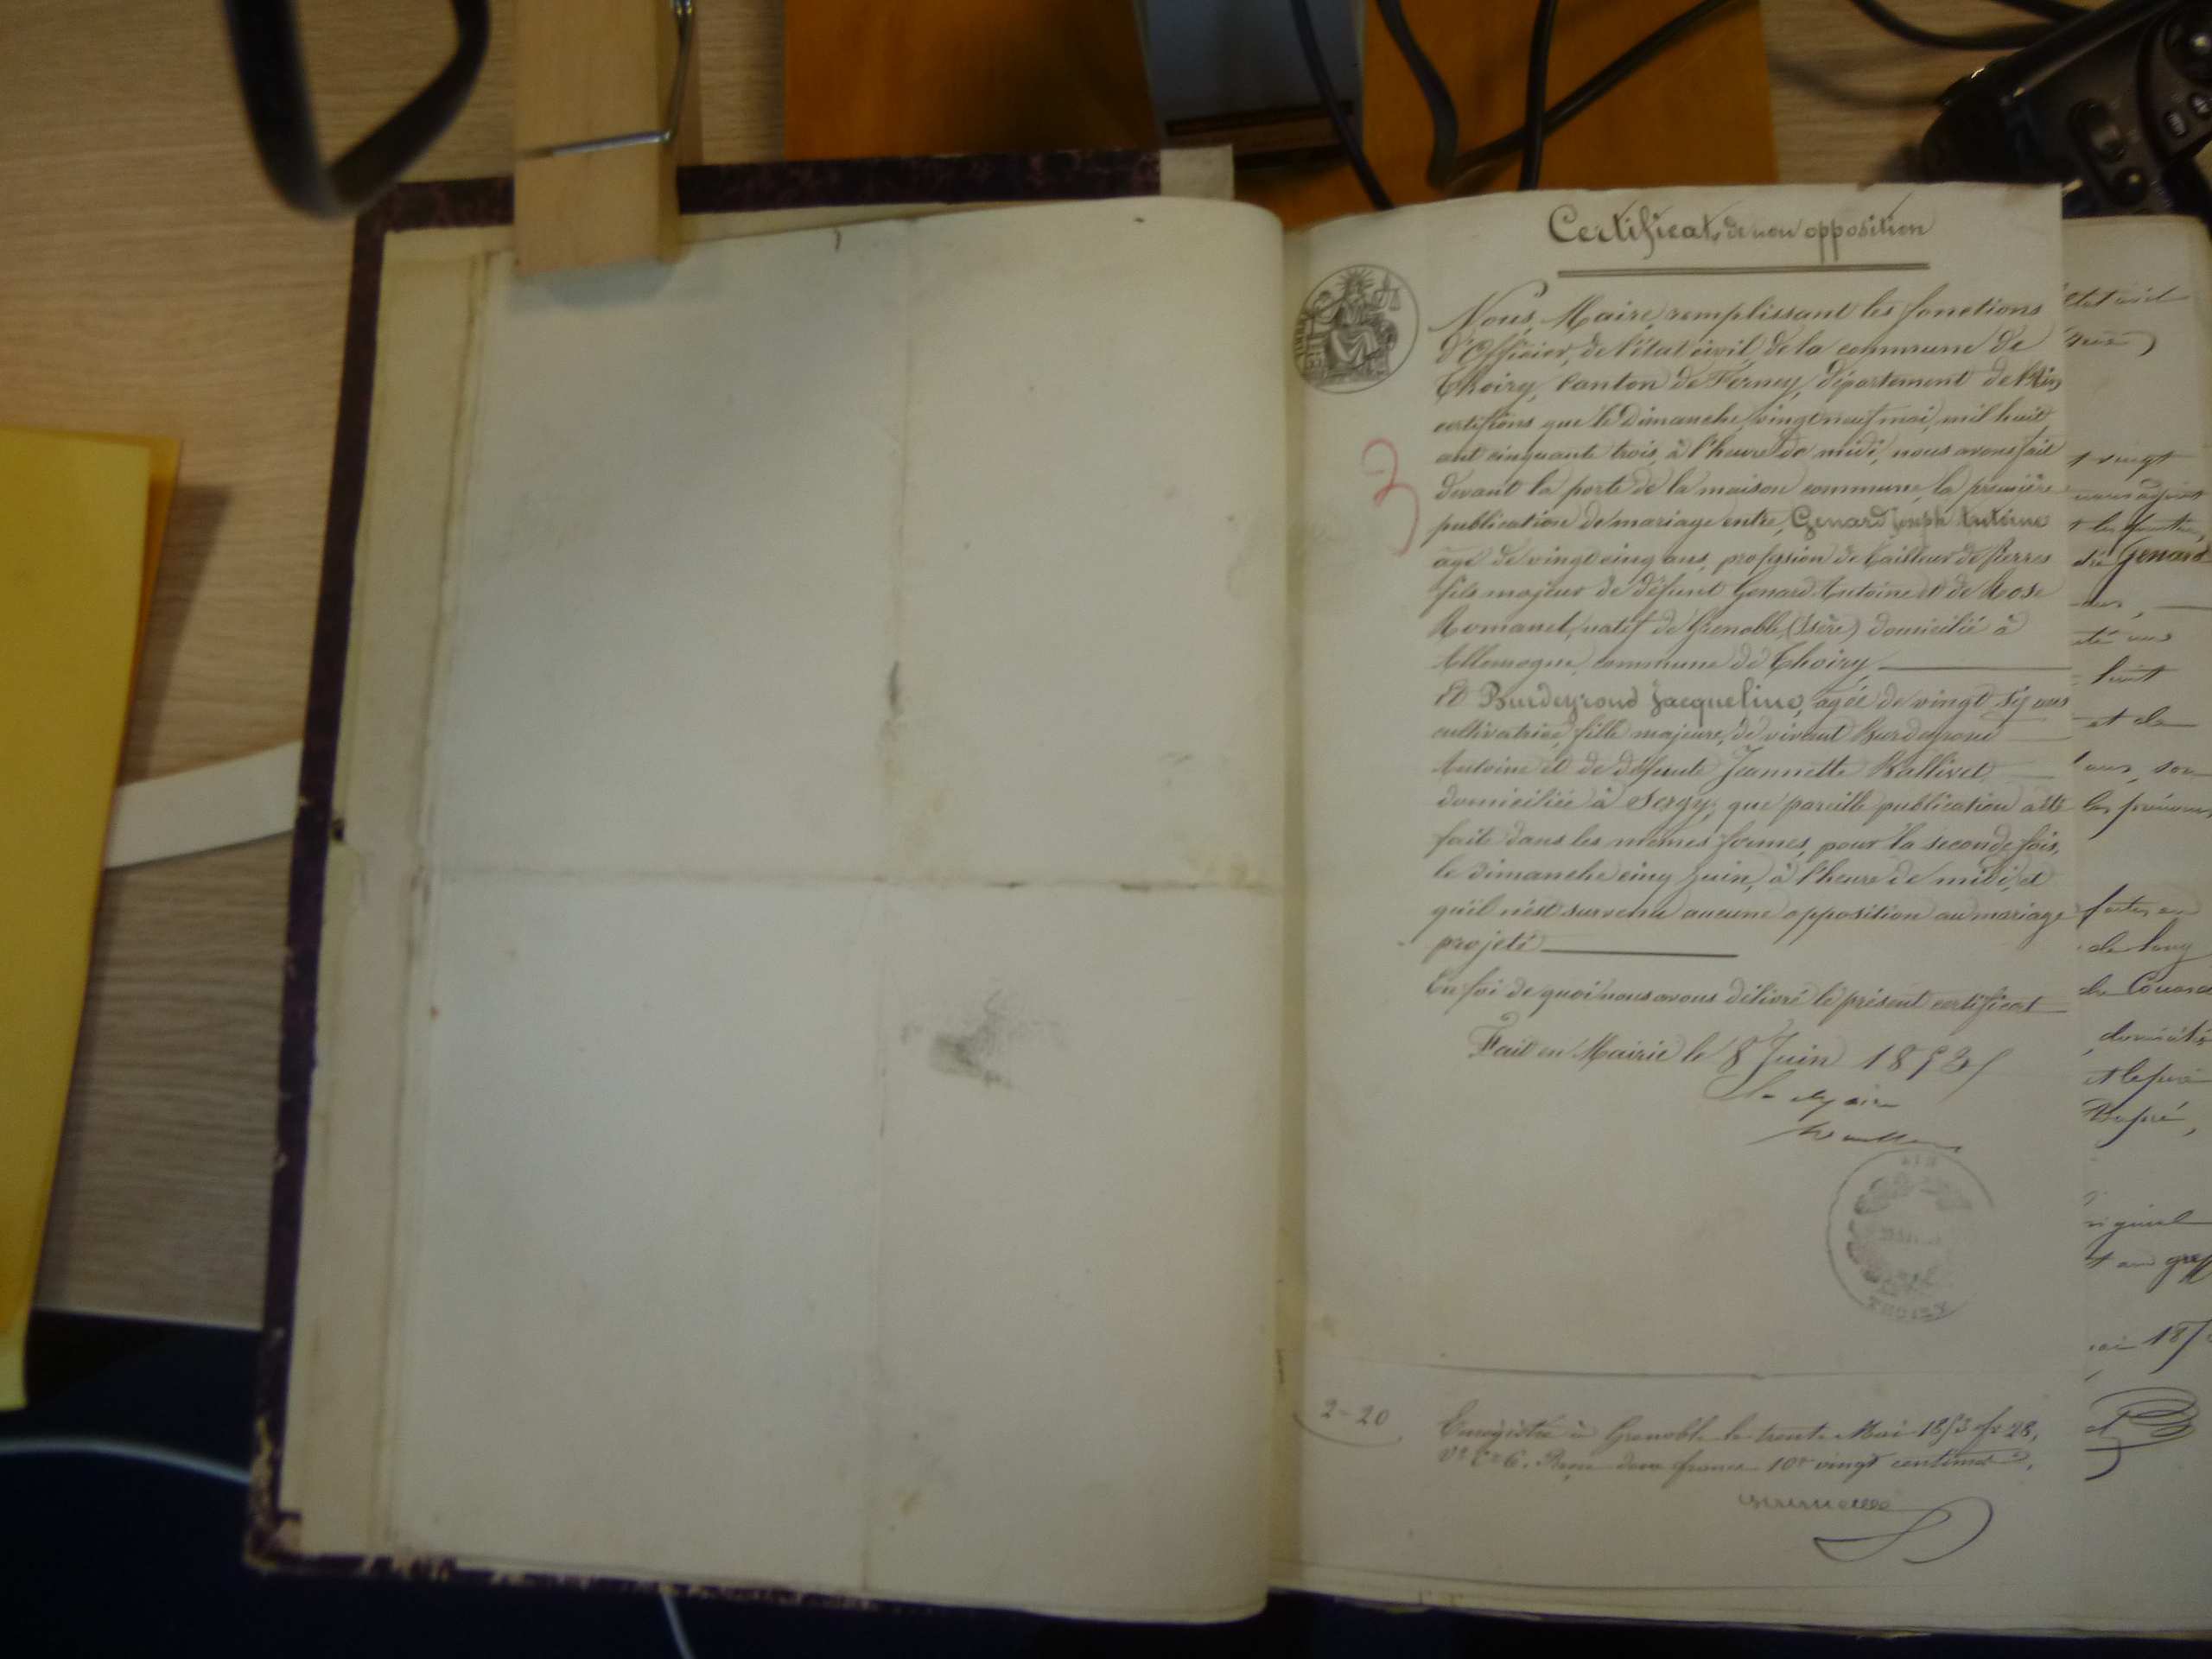 Certificat de non opposition
Nous, Maire, remplissant les fonctions
d'Officier, de l'état civil, de la commune de
Thoiry, Canton de Ferney, département de l'Ain
certifions que le Dimanche, vingt neuf mai, mil huit
cent cinquante trois, à l'heure de midi, nous avons fait
devant la porte de la maison commune, la première
publication de mariage entre, Genard Joseph Antoine
agé de vingt cinq ans, profession de tailleur de Pierres
fils majeur de défunt Genard Antoine et de Rose
Romanet, natif de Grenoble, (Isère) domicilié à
Allemogne, commune de Thoiry
Et Burdeyrond Jacqueline, agée de vingt six ans
cultivatrice, fille majeure, de vivant Burdeyrond
Antoine et de défunte Jeannette Ballivet
domiciliée à Sergy; que pareille publication a été
faite dans les mêmes formes, pour la seconde fois,
le Dimanche cinq Juin, à l'heure de midi, et
qu'il n'est survenu aucune opposition au mariage
projeté
En foi de quoi nous avons délivré le présent certificat
Fait en Mairie le 8 Juin 1853
Le Maire
2-20
Enregistré à Grenoble le trente Mai 1853 f° 28,
V° C° 6. Reçu deux francs 10e vingt centimes.
état civil
t vingt
Genard
huit
et de
les prénoms
faites au
domicilié
Dupré,
original
au greff